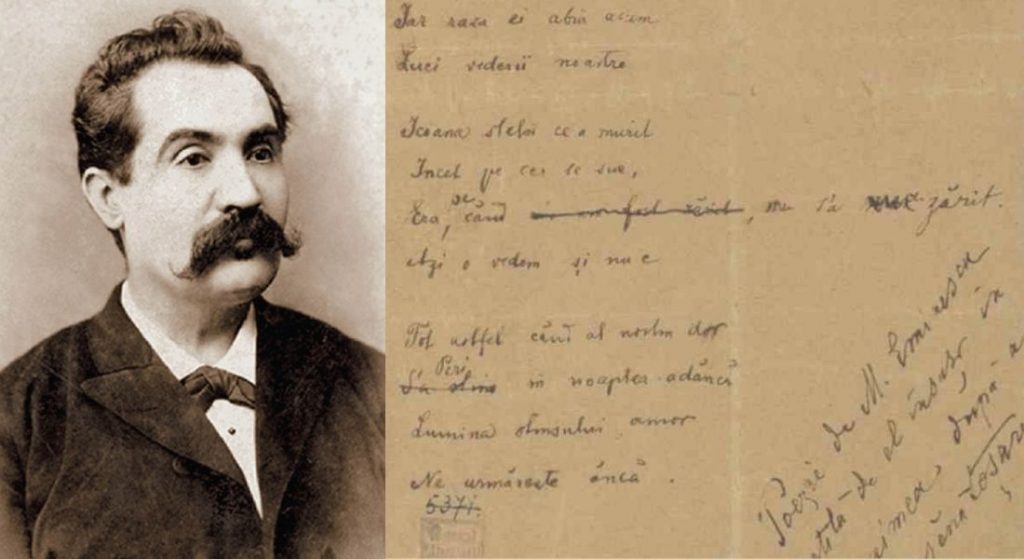 Iar raza ei abia acum
Luci vederii noastre
Icoana stelei ce a murit
Incet pe cer se sue,
Era, pe când nu s'a zărit.
Azi o vedem și nu e
Tot astfel când al nostru dor
Peri
S'a stins in noaptea adâncă
Lumina stinsului amor
Ne urmărește âncă.
5371
Poezie de M. Eminescu
de el însăși in
după a